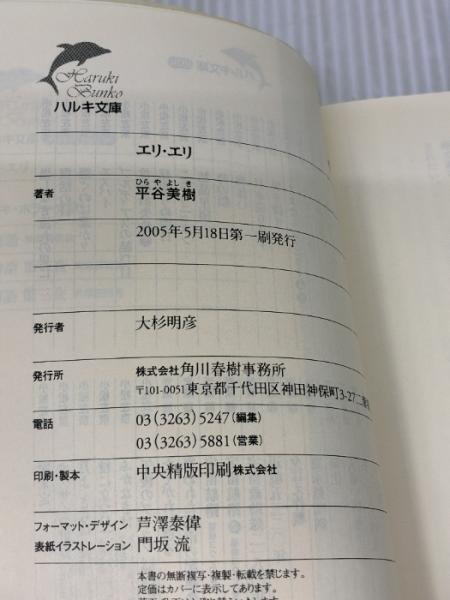 Haruki
Bunko
ハルキ文庫
エリ・エリ
著者
ひらやよしき
平谷美樹
2005年5月18日第一刷発行
発行者
大杉明彦
発行所
株式会社角川春樹事務所
〒101-0051東京都千代田区神田神保町3-27二葉
電話
03(3263)5247(編集)
03(3263)5881(営業)
印刷・製本
中央精版印刷株式会社
フォーマット・デザイン
芦澤泰偉
表紙イラストレーション
門坂 流
本書の無断複写・複製・転載を禁じます。
定価はカバーに表示してあります。